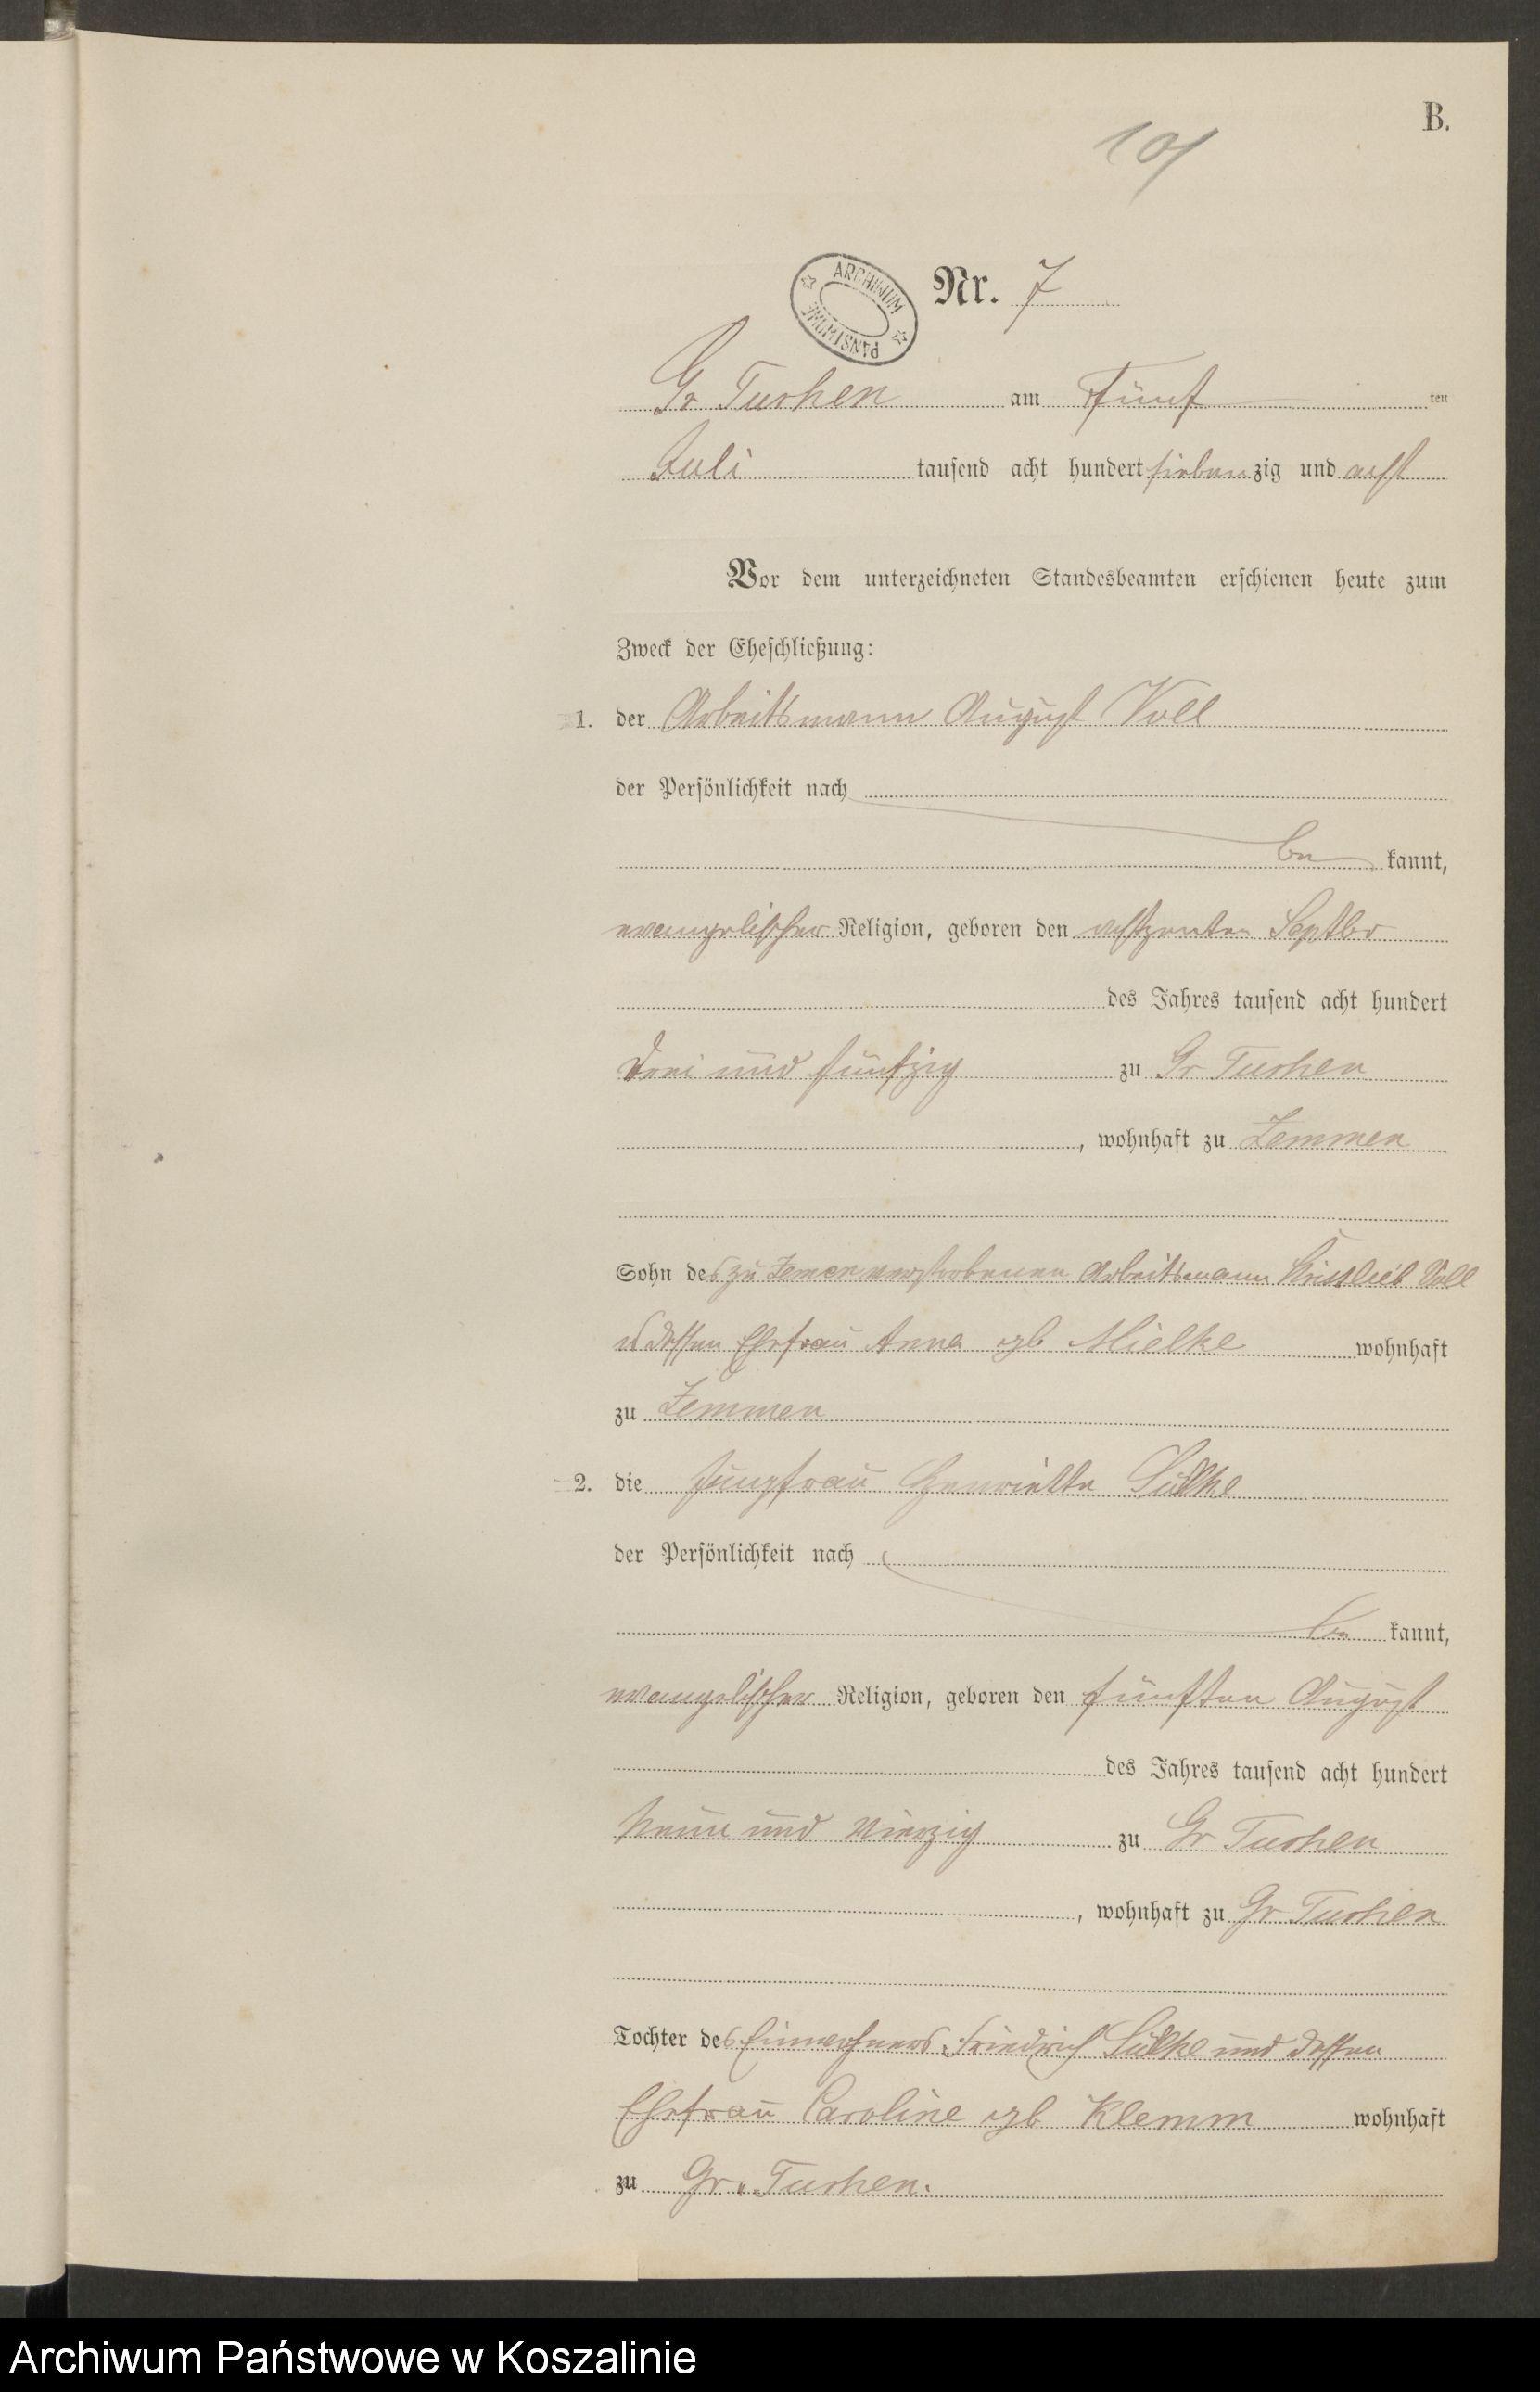 B.
101
ARCHIWUM PAŃSTWOWE
Nr. 7
Gr Tuchen am Fünf ten
Juli tausend acht hundert siebenzig und acht
Vor dem unterzeichneten Standesbeamten erschienen heute zum
Zweck der Eheschließung:
1. der Arbeitsmann August Voll
der Persönlichkeit nach
be kannt,
evangelischer Religion, geboren den achtzenten Septbr
des Jahres tausend acht hundert
drei und fünfzig zu Gr Tuchen
, wohnhaft zu Zemmen
Sohn des zu Zemen verstorbenen Arbeitsmann Voll
u dessen Ehefrau Anna geb Mielke wohnhaft
zu Zemmen
2. die Jungfrau Henriette Lüdtke
der Persönlichkeit nach
be kannt,
evangelischer Religion, geboren den fünften August
des Jahres tausend acht hundert
neun und vierzig zu Gr Tuchen
, wohnhaft zu Gr Tuchen
Tochter des Einwohners Friedrich und dessen
Ehefrau Caroline geb Klemm wohnhaft
zu Gr. Tuchen.
Archiwum Państwowe w Koszalinie